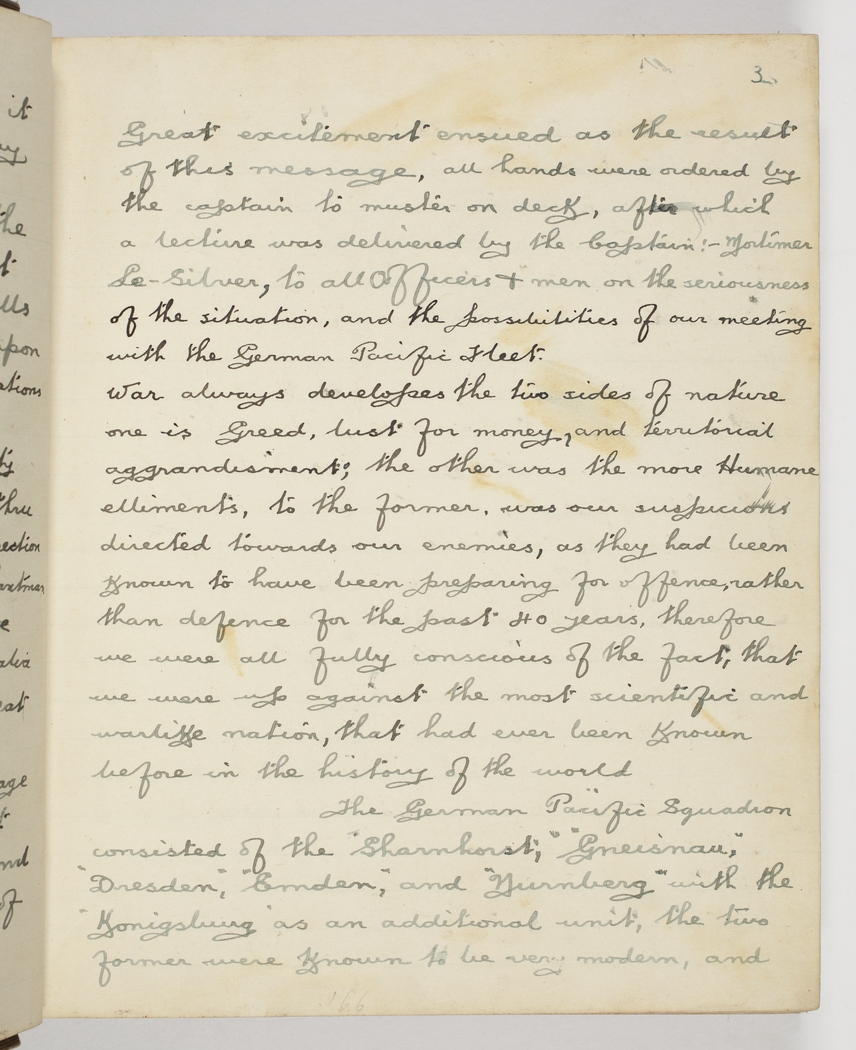 3
Great excitement ensued as the result
of this message, all hands were ordered by
the captain to muster on deck, after which
a lecture was delivered by the Captain:- Mortimer
Le-Silver, to all Officers + men on the seriousness
of the situation, and the possibilities of our meeting
with the German Pacific Fleet.
War always developes the two sides of nature
one is Greed, lust for money, and territorial
aggrandisment; the other was the more Humane
elliments, to the former, was our suspicions
directed towards our enemies, as they had been
Known to have been preparing for offence, rather
than defence for the past 40 years, therefore
we were all fully conscious of the fact, that
we were up against the most scientific and
warlike nation, that had ever been Known
before in the history of the world
The German Pacific Squadron
consisted of the "Sharnhorst," "Gneisnau,"
"Dresden", "Emden", and "Nurnberg" with the
"Konigsburg" as an additional unit, the two
former were Known to be very modern, and
it
the
t
lls
upon
ations
ty
thru
ection
e
alia
eat
age
t
nd
of
166